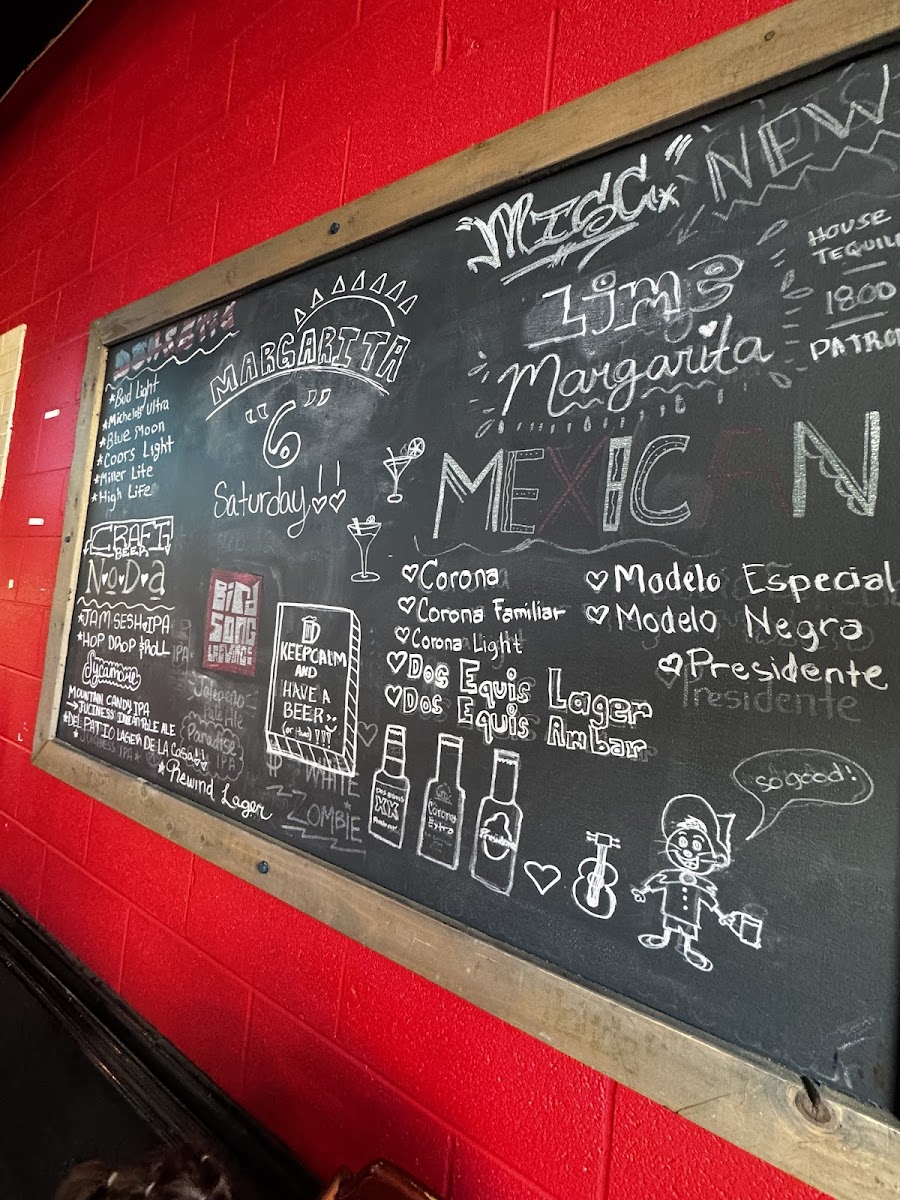 DOMESTIC
*Bud Light
*Michelob Ultra
*Blue Moon
*Coors Light
*Miller Lite
*High Life
CRAFT
BEER
NoDa
*JAM SESH IPA
*HOP DROP & ROLL
Sycamore
MOUNTAIN CANDY IPA
JUCINESS INDIAN PALE ALE
*DEL PATIO LAGER DE LA CASA!!
*JUCINESS IPA
*Rewind Lager
MARGARITA
"6"
Saturday!!
BIRD
SONG
IPA
Jalapeno
Pale Ale
Paradise
IPA
KEEP CALM
AND
HAVE A
BEER
(or two) !!!
$ WHITE
ZOMBIE
"MISC"
NEW
Lime
Margarita
HOUSE
TEQUIL
1800
PATRO
MEXICAN
Corona
Corona Familiar
Corona Light
Dos Equis Lager
Dos Equis Ambar
Modelo Especial
Modelo Negra
Presidente
Presidente
XX
Corona
Extra
Presidente
so good!